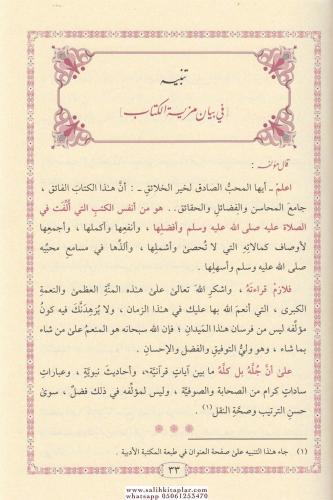 تنبيه
[في بيان مزية الكتاب]
قال مؤلفه :
اعلم ـ أيها المحبُّ الصادق لخير الخلائق ـ : أنَّ هذا الكتابَ الفائق ،
جامعَ المحاسن والفضائل والحقائق .. هو من أنفس الكتبِ التي أُلِّفت في
الصلاة عليه صلى الله عليه وسلم وأفضلِها ، وأنفعِها وأكملِها ، وأجمعِها
لأوصاف كمالاتِهِ التي لا تُحصىٰ وأشملِها ، وألذِّها في مسامعِ محبِّيه
صلى الله عليه وسلم وأسهلِها .
فلازِمْ قراءتَهُ ، واشكرِ اللهَ تعالىٰ علىٰ هذه المنَّةِ العظمىٰ والنعمةِ
الكبرى ، التي أنعمَ اللهُ بها عليك في هذا الزمان ، ولا يُزهِدنَّكَ فيه كونُ
مؤلِّفه ليس من فرسان هذا الميدان ؛ فإن الله سبحانه هو المنعمُ علىٰ من شاء
بما شاء ، وهو وليُّ التوفيقِ والفضل والإحسان .
علىٰ أنَّ جُلَّهُ بل كلَّهُ ما بين آياتٍ قرآنيَّة ، وأحاديثَ نبويَّة ، وعباراتِ
ساداتٍ كرام من الصحابة والصوفيَّة ، وليس لمؤلِّفه في ذلك فضلٌ ، سوىٰ
حسنِ الترتيب وصحَّةِ النقل(١) .
* * *
(١) جاء هذا التنبيه على صفحة العنوان في طبعة المكتبة الأدبية .
٣٣
www.salihkitaplar.com
whatsapp 05061253470